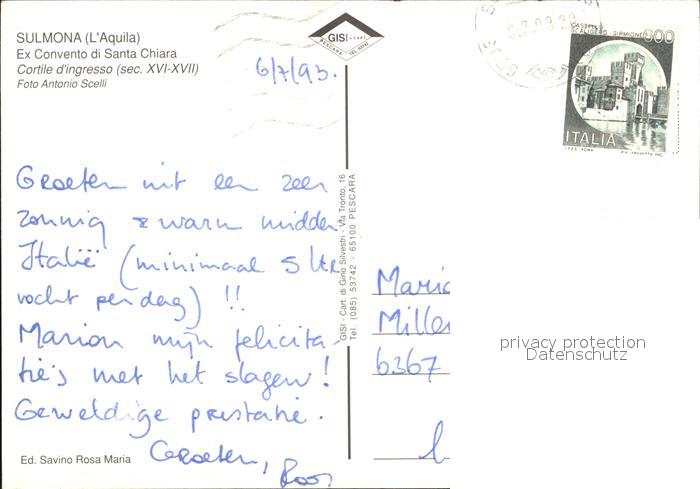 SULMONA (L'Aquila)
Ex Convento di Santa Chiara
Cortile d'ingresso (sec. XVI-XVII)
Foto Antonio Scelli
GISI - cart
PESCARA TEL. 53742
6/7/93.
CASTELLO SCALIGERO - SIRMIONE 600
ITALIA
Groeten uit een zeer
zonnig & warm midden
Italië (minimaal 5 ltr
vocht per dag) !!
Marion mijn felicita-
tie's met het slagen!
Geweldige prestatie.
Groeten, Roos
GISI - Cart. di Gino Silvestri - Via Tronto, 16
Tel. (085) 53742 - 65100 PESCARA
Mario
Miller
6367
privacy protection
Datenschutz
Ed. Savino Rosa Maria